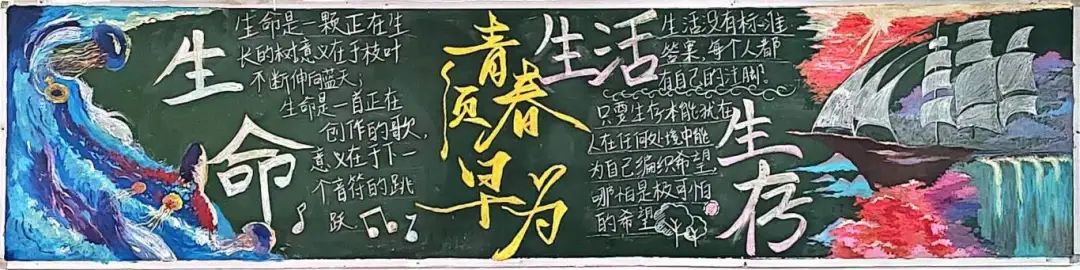 生命
生命是一颗正在生
长的树意义在于枝叶
不断伸向蓝天;
生命是一首正在
创作的歌,
意义在于下一
个音符的跳
跃
青春
须早为
生活
生活没有标准
答案,每个人都
有自己的注脚
只要生存本能犹在
人在任何处境中能
为自己编织希望,
哪怕是极可怕
的希望
生存